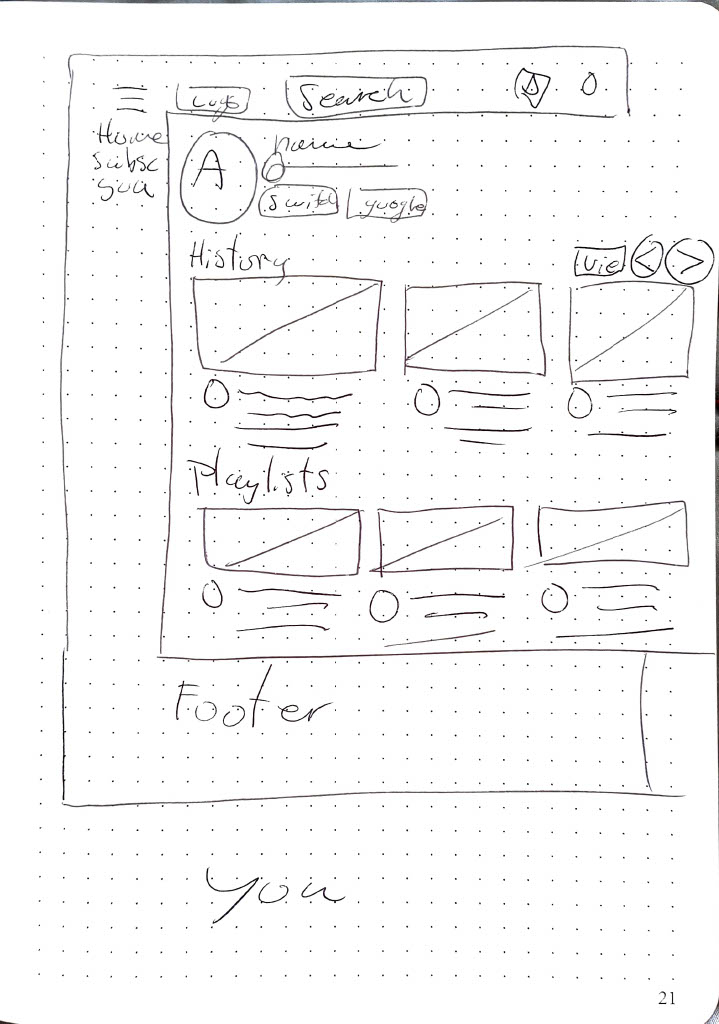 Logo
Search
Home
Subsc
You
A
name
Switch
google
History
Vie < >
Playlists
Footer
You
21